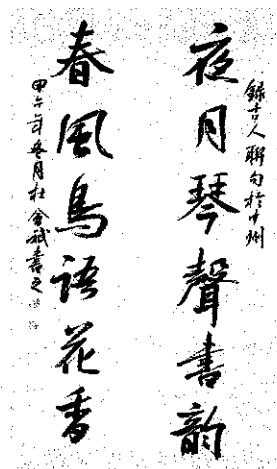 錄古人聯句於中州
夜月琴聲書韵
春風鳥語花香
甲午年冬月杜金斌書之